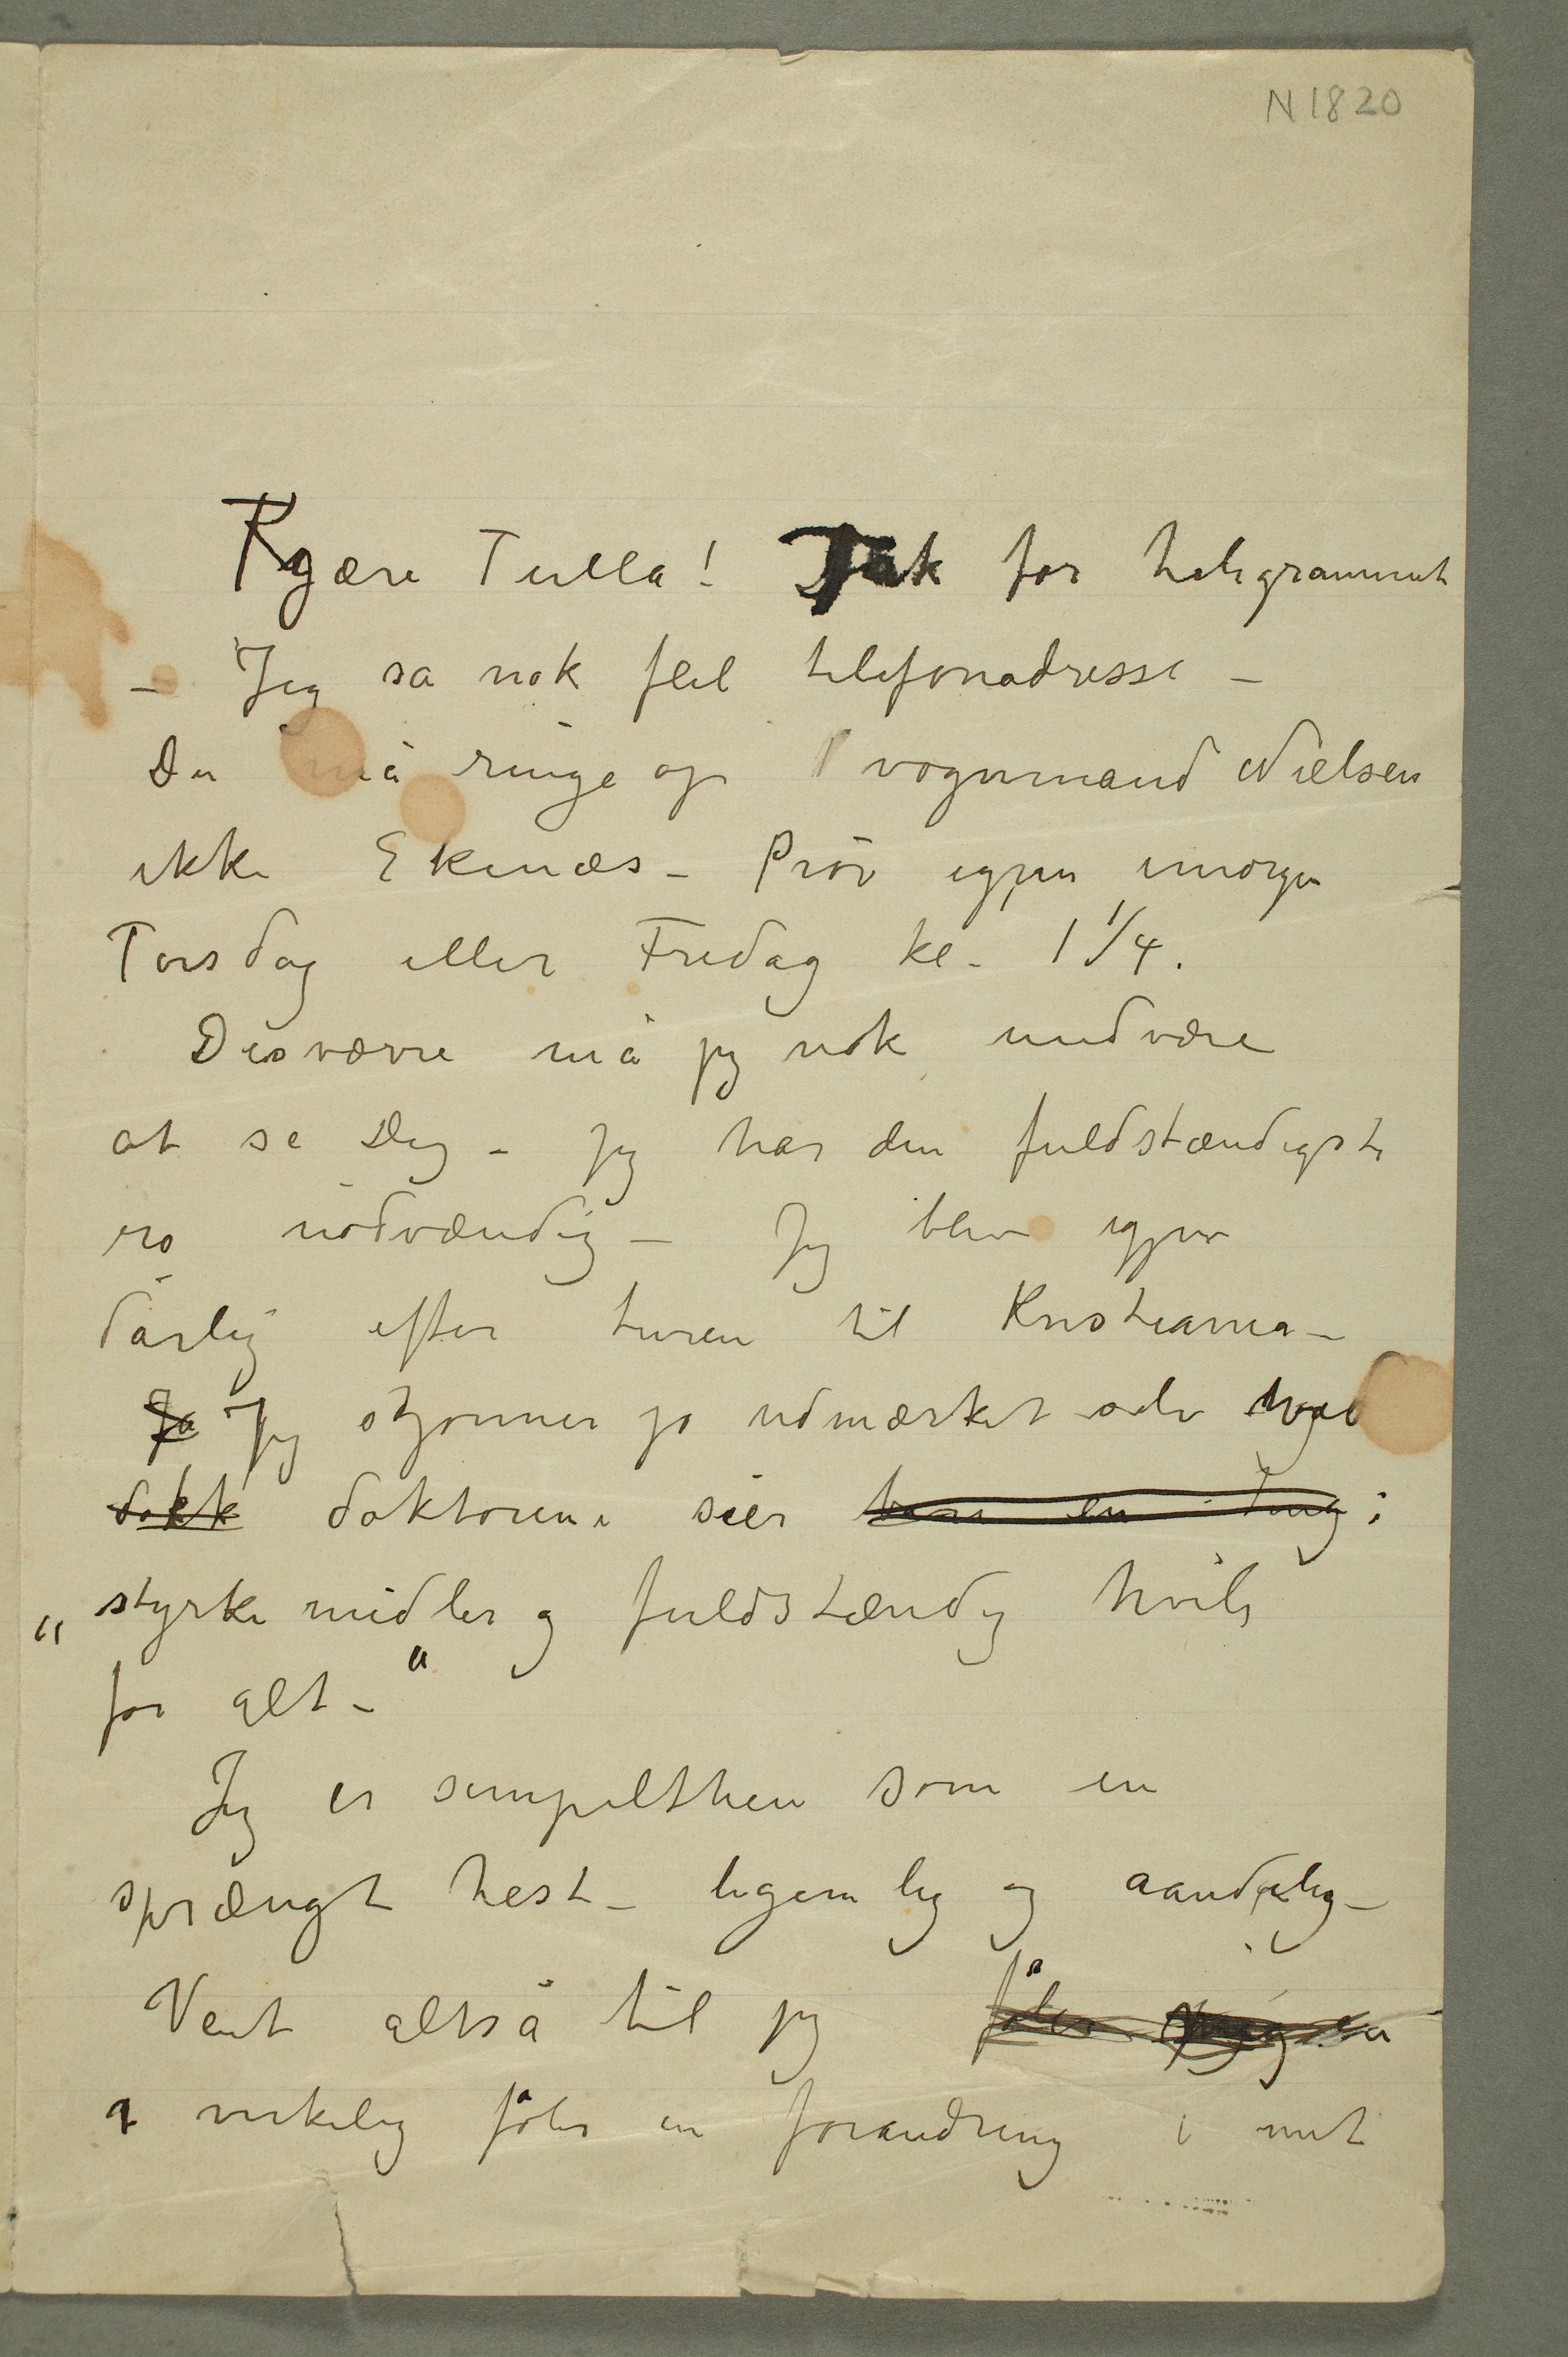 N 1820
Kjære Tulla! Tak for telegrammet
– Jeg sa nok feil telefonadresse –
Du må ringe op vognmand Nielsen
ikke Ekenæs – Prøv igjen imorgen
Torsdag eller Fredag kl. 1 1/4.
Desværre må jeg nok undvære
at se Dig – jeg har den fuldstændigste
ro nödvændig – Jeg blev igjen
dårlig efter turen til Kristiania –
Ja Jeg skjønner jo udmærket selv hvad
dokk doktorene sier bare en ting:
„styrkemidler og fuldstændig hvile
for alt –"
Jeg er simpelthen som en
sprængt hest – legemlig og aandelig –
Vent altså til jeg føler mig
virkelig føler en forandring i mit